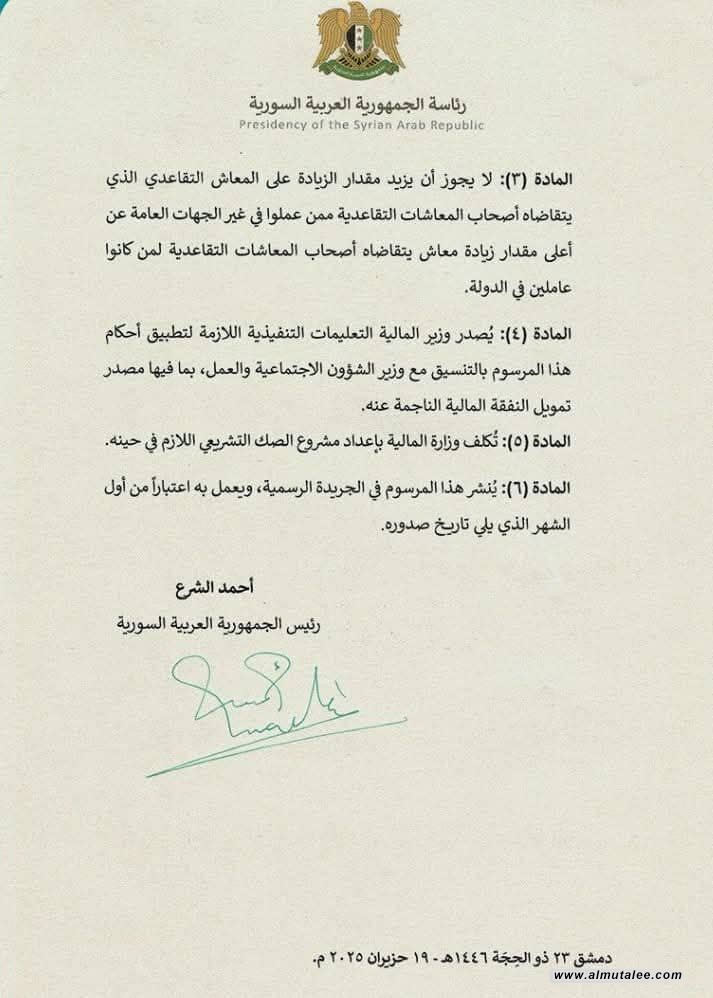 رئاسة الجمهورية العربية السورية
Presidency of the Syrian Arab Republic
المادة (٣): لا يجوز أن يزيد مقدار الزيادة على المعاش التقاعدي الذي
يتقاضاه أصحاب المعاشات التقاعدية ممن عملوا في غير الجهات العامة عن
أعلى مقدار زيادة معاش يتقاضاه أصحاب المعاشات التقاعدية لمن كانوا
عاملين في الدولة.
المادة (٤): يُصدر وزير المالية التعليمات التنفيذية اللازمة لتطبيق أحكام
هذا المرسوم بالتنسيق مع وزير الشؤون الاجتماعية والعمل، بما فيها مصدر
تمويل النفقة المالية الناجمة عنه.
المادة (٥): تُكلف وزارة المالية بإعداد مشروع الصك التشريعي اللازم في حينه.
المادة (٦): يُنشر هذا المرسوم في الجريدة الرسمية، ويعمل به اعتباراً من أول
الشهر الذي يلي تاريخ صدوره.
أحمد الشرع
رئيس الجمهورية العربية السورية
دمشق ٢٣ ذو الحِجَة ١٤٤٦هـ - ١٩ حزيران ٢٠٢٥ م.
www.almutalee.com